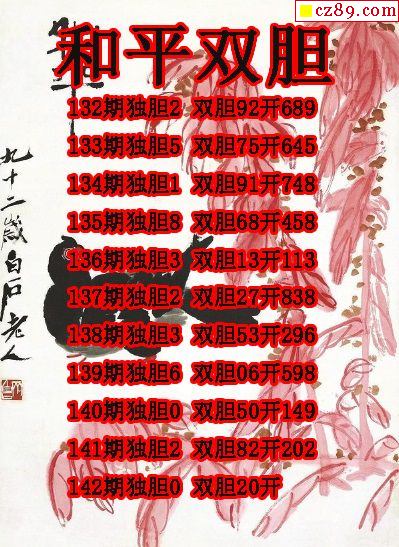 cz89.com
和平双胆
132期独胆2 双胆92开689
133期独胆5 双胆75开645
134期独胆1 双胆91开748
135期独胆8 双胆68开458
136期独胆3 双胆13开113
137期独胆2 双胆27开838
138期独胆3 双胆53开296
139期独胆6 双胆06开598
140期独胆0 双胆50开149
141期独胆2 双胆82开202
142期独胆0 双胆20开
九十二岁白石老人